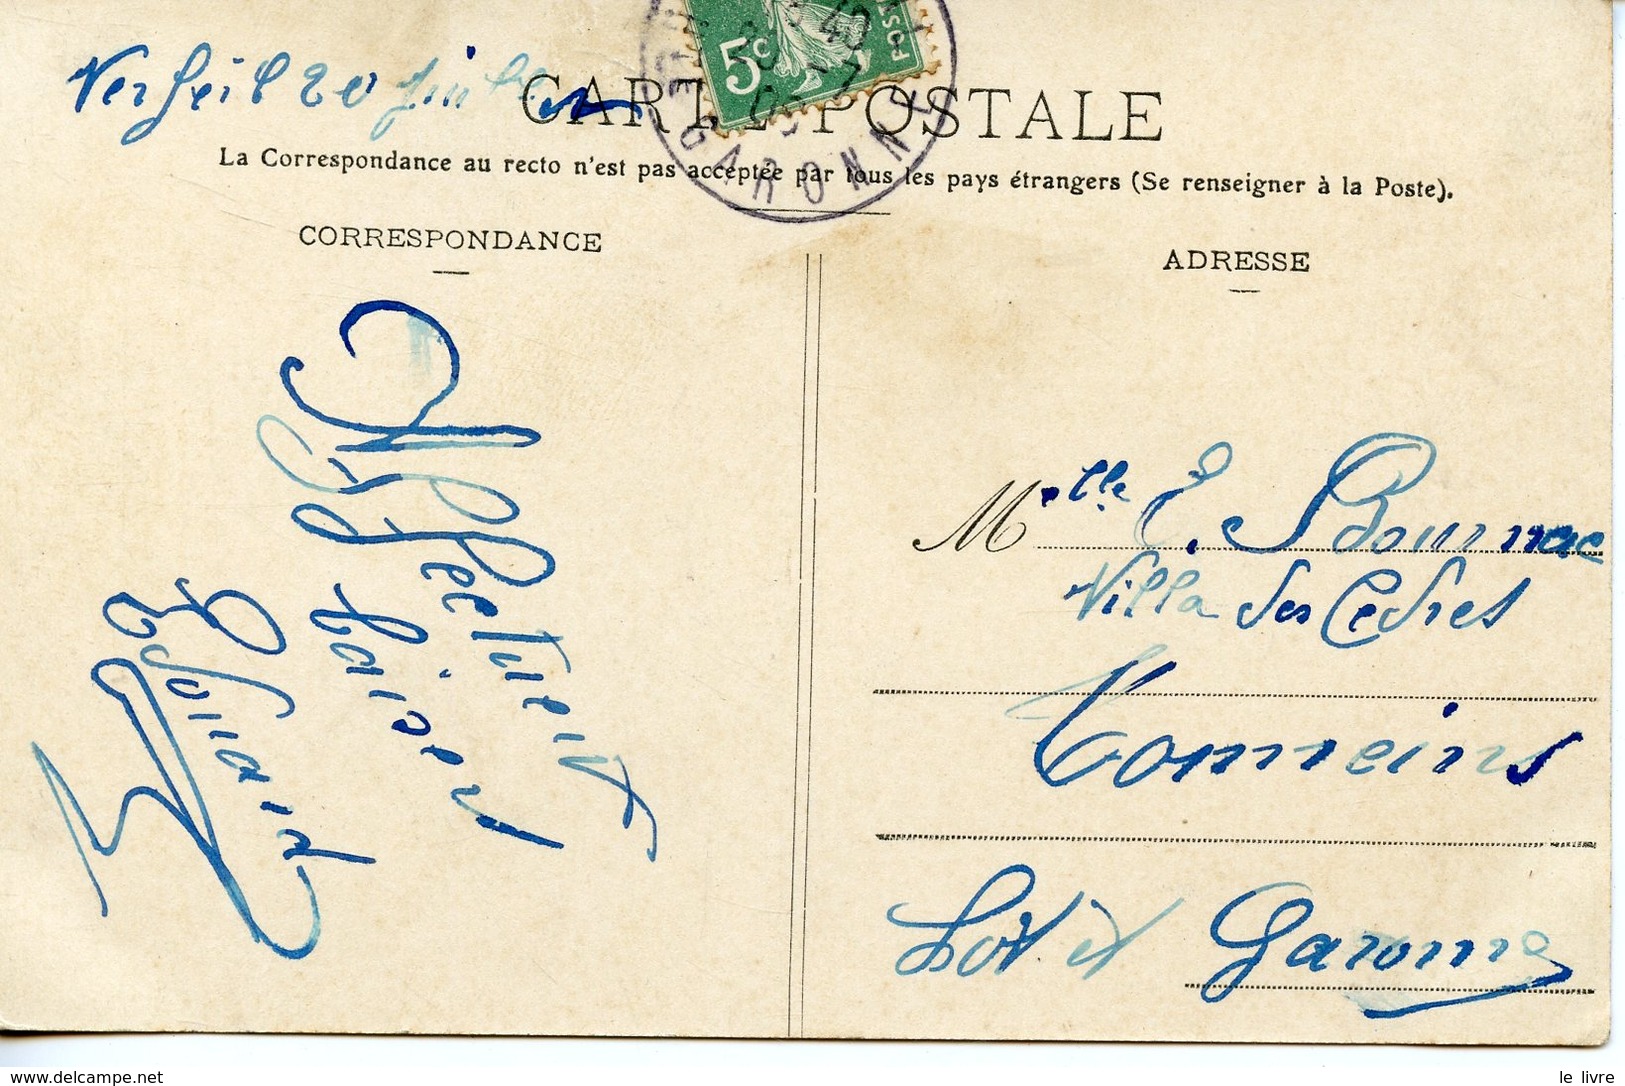 Verfeil 20 Juillet
CARTE POSTALE
5c
POSTES
20 -7
09
GARONNE
La Correspondance au recto n'est pas acceptée par tous les pays étrangers (Se renseigner à la Poste).
CORRESPONDANCE
ADRESSE
Affectueux
baisers
Edouard
Melle E. Bournac
Villa des Cedres
Tonneins
Lot et Garonne
www.delcampe.net
le livre